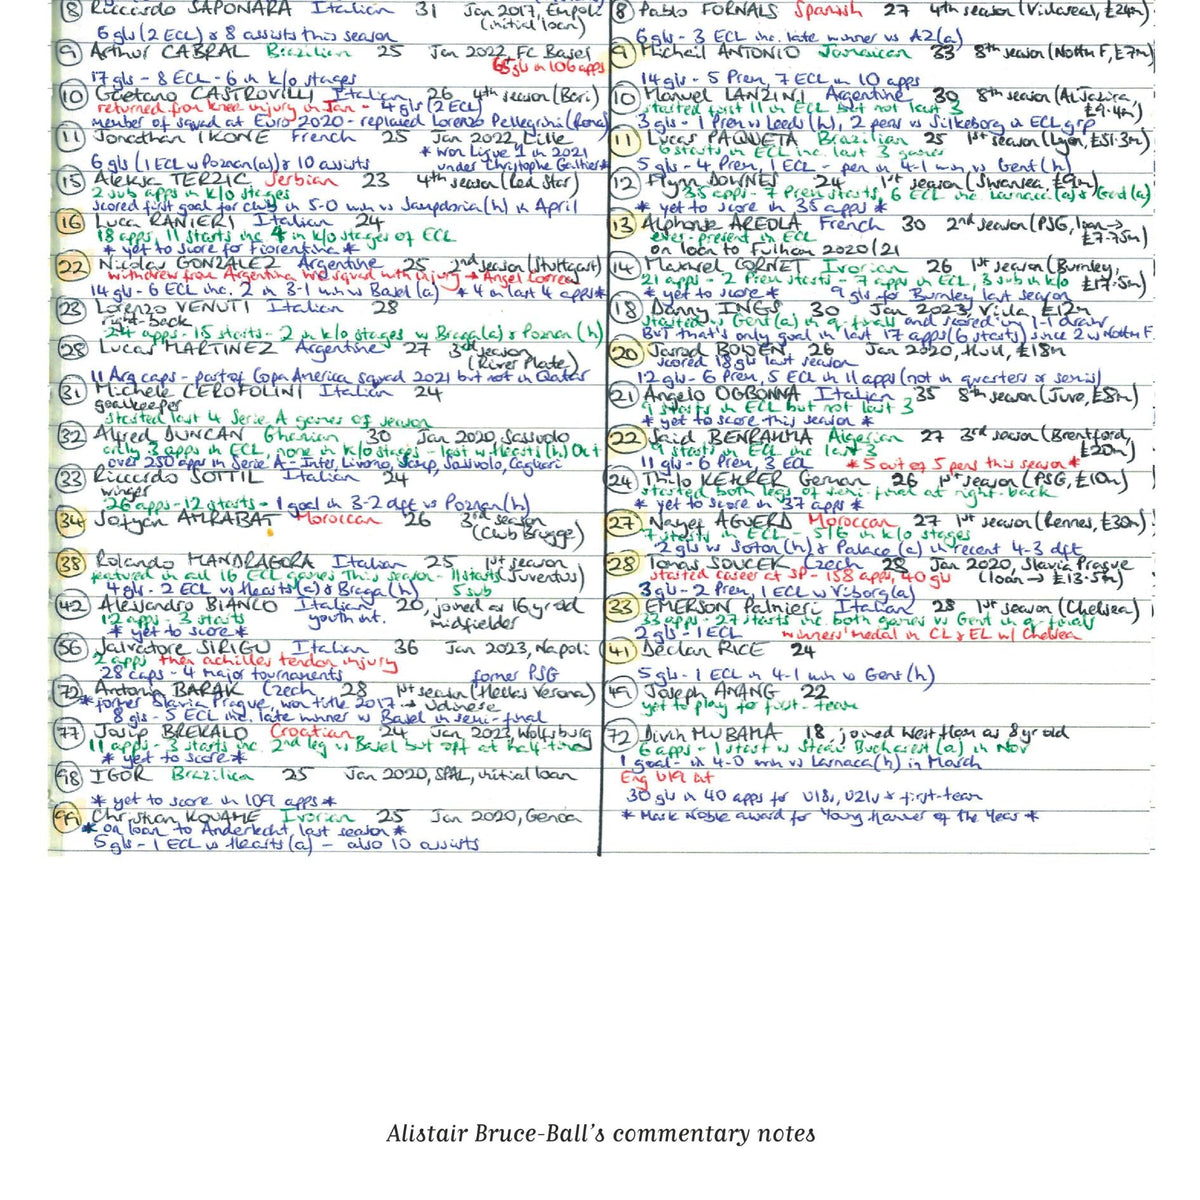 8 Riccardo SAPONARA Italian 31 Jan 2017, Empoli
(initial loan)
6 gls (2 ECL) & 8 assists this season
9 Arthur CABRAL Brazilian 25 Jan 2022, FC Basel
65 gls in 106 apps
17 gls - 8 ECL - 6 in k/o stages
10 Gaetano CASTROVILLI Italian 26 4th season (Bari)
returned from knee injury in Jan - 4 gls (2 ECL)
member of squad at Euro 2020 - replaced Lorenzo Pellegrini (Roma)
11 Jonathan IKONE French 25 Jan 2022, Lille
* won Ligue 1 in 2021
6 gls (1 ECL v Poznan (a)) & 10 assists under Christophe Galtier *
15 Aleksa TERZIC Serbian 23 4th season (Red Star)
2 sub apps in k/o stages
scored first goal for club in 5-0 win vs Sampdoria (h) in April
16 Luca RANIERI Italian 24
18 apps, 11 starts inc 4 in k/o stages of ECL
* yet to score for Fiorentina *
22 Nicolas GONZALEZ Argentine 25 2nd season (Stuttgart)
withdrew from Argentina WC squad with injury → Angel Correa
14 gls - 6 ECL inc. 2 in 3-1 win vs Basel (a) * 4 in last 4 apps *
23 Lorenzo VENUTI Italian 28
right-back
24 apps - 15 starts - 2 in k/o stages vs Braga (a) & Poznan (h)
28 Lucas MARTINEZ Argentine 27 3rd season
(River Plate)
11 Arg caps - part of Copa America squad 2021 but not in Qatar
31 Michele CEROFOLINI Italian 24
goalkeeper
started last 4 Serie A games of season
32 Alfred DUNCAN Ghanian 30 Jan 2020, Sassuolo
only 3 apps in ECL, none in k/o stages - last v Hearts (h) Oct
over 250 apps in Serie A - Inter, Livorno, Samp, Sassuolo, Cagliari
33 Riccardo SOTTIL Italian 24
winger
26 apps - 12 starts - 1 goal in 3-2 dft vs Poznan (h)
34 Sofyan AMRABAT Moroccan 26 3rd season
(Club Brugge)
38 Rolando MANDRAGORA Italian 25 1st season
featured in all 16 ECL games this season - 11 starts (Juventus)
4 gls - 2 ECL vs Hearts (a) & Braga (h) 5 sub
42 Alessandro BIANCO Italian 20, joined as 16 yr old
12 apps - 3 starts youth int. midfielder
* yet to score *
56 Salvatore SIRIGU Italian 36 Jan 2023, Napoli
2 apps then achilles tendon injury
28 caps - 4 major tournaments former PSG
72 Antonin BARAK Czech 28 1st season (Hellas Verona)
* former Slavia Prague, won title 2017 → Udinese
8 gls - 5 ECL inc. late winner vs Basel in semi-final
77 Josip BREKALO Croatian 24 Jan 2023, Wolfsburg
11 apps - 3 starts inc. 2nd leg vs Basel but off at half-time
* yet to score *
98 IGOR Brazilian 25 Jan 2020, SPAL, initial loan
* yet to score in 109 apps *
99 Christian KOUAME Ivorian 25 Jan 2020, Genoa
* on loan to Anderlecht last season *
5 gls - 1 ECL vs Hearts (a) - also 10 assists
8 Pablo FORNALS Spanish 27 4th season (Villareal, £24m)
6 gls - 3 ECL inc. late winner vs AZ (a)
9 Michail ANTONIO Jamaican 33 8th season (Nottm F, £7m)
14 gls - 5 Prem, 7 ECL in 10 apps
10 Manuel LANZINI Argentine 30 8th season (Al Jazira,
started first 11 in ECL but not last 3 £9.4m)
3 gls - 1 Prem vs Leeds (h), 2 pens vs Silkeborg in ECL grp
11 Lucas PAQUETA Brazilian 25 1st season (Lyon, £51.3m)
6 starts in ECL inc. last 3 games
5 gls - 4 Prem, 1 ECL - pen in 4-1 win vs Gent (h)
12 Flynn DOWNES 24 1st season (Swansea, £9m)
35 apps - 7 Prem starts, 6 ECL inc Larnaca (a) & Gent (a)
* yet to score in 35 apps *
13 Alphonse AREOLA French 30 2nd season (PSG, loan →
ever-present in ECL £7.75m)
on loan to Fulham 2020/21
14 Maxwel CORNET Ivorian 26 1st season (Burnley,
21 apps - 2 Prem starts - 7 apps in ECL, 3 sub in k/o £17.5m)
* yet to score * 9 gls for Burnley last season
18 Danny INGS 30 Jan 2023, Villa, £12m
started vs Gent (a) in q-finals and scored in 1-1 draw
But that's only goal in last 17 apps (6 starts) since 2 vs Nottm F
20 Jarrod BOWEN 26 Jan 2020, Hull, £18m
scored 18 gls last season
12 gls - 6 Prem, 5 ECL in 11 apps (not in quarters or semis)
21 Angelo OGBONNA Italian 35 8th season (Juve, £8m)
9 starts in ECL but not last 3
* yet to score this season *
22 Said BENRAHMA Algerian 27 3rd season (Brentford,
9 starts in ECL inc last 3 £20m)
11 gls - 6 Prem, 3 ECL * 5 out of 5 pens this season *
24 Thilo KEHRER German 26 1st season (PSG, £10m)
started both legs of semi-final at right-back
* yet to score in 37 apps *
27 Nayef AGUERD Moroccan 27 1st season (Rennes, £30m)
7 starts in ECL - 5/6 in k/o stages
2 gls vs Soton (h) & Palace (a) in recent 4-3 dft
28 Tomas SOUCEK Czech 28 Jan 2020, Slavia Prague
started career at SP - 158 apps, 40 gls (loan → £13.5m)
3 gls - 2 Prem, 1 ECL vs Viborg (a)
33 EMERSON Palmieri Italian 28 1st season (Chelsea)
33 apps - 27 starts inc. both games vs Gent in q-finals
2 gls - 1 ECL winners' medal in CL & EL w/ Chelsea
41 Declan RICE 24
5 gls - 1 ECL in 4-1 win vs Gent (h)
49 Joseph ANANG 22
yet to play for first-team
72 Divin MUBAMA 18, joined West Ham as 8 yr old
6 apps - 1 start vs Steau Bucharest (a) in Nov
1 goal - in 4-0 win vs Larnaca (h) in March
Eng U19 int
30 gls in 40 apps for U18s, U21s & first-team
* Mark Noble award for Young Hammer of the Year *
Alistair Bruce-Ball's commentary notes